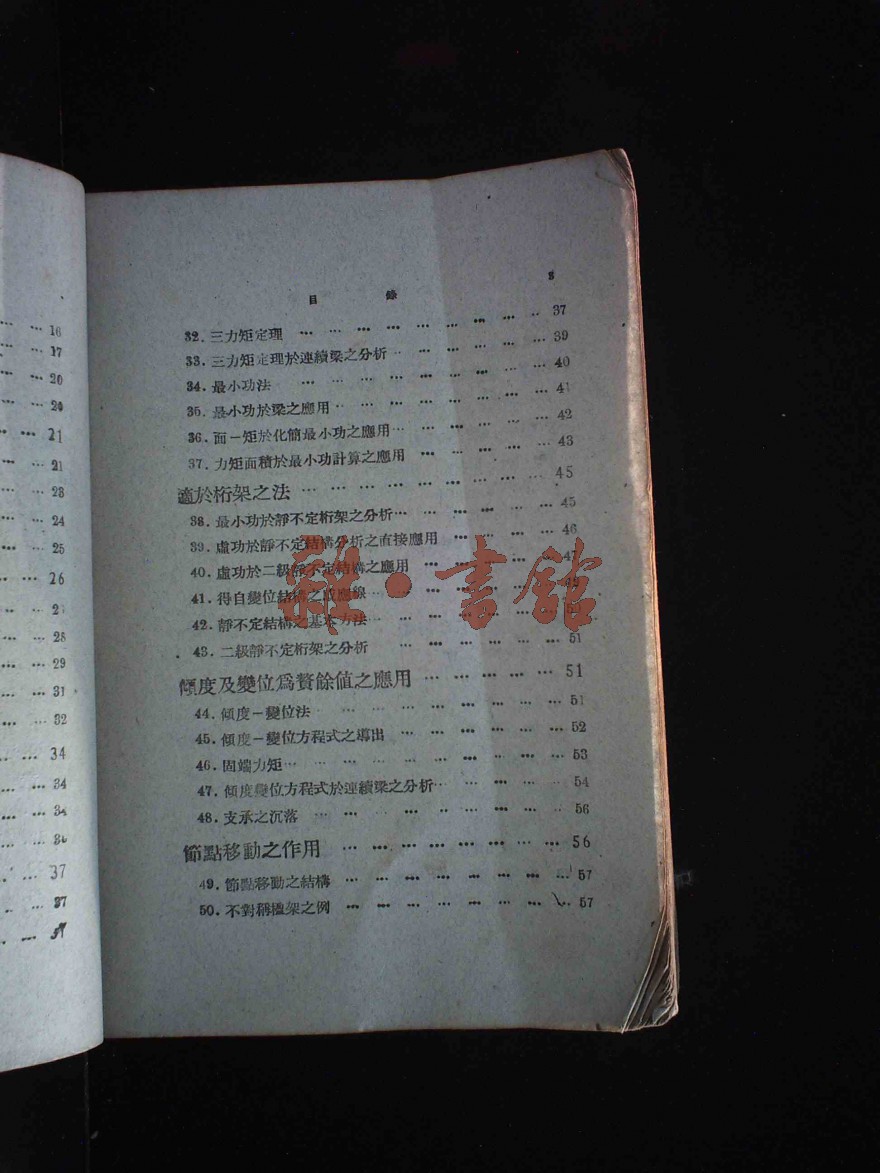 16
17
20
20
21
21
23
24
25
26
28
29
31
32
34
34
34
37
37
目 錄 3
32. 三力矩定理 … … … … … … … … … … 37
33. 三力矩定理於連續梁之分析 … … … … … … 39
34. 最小功法 … … … … … … … … … … 40
35. 最小功於梁之應用 … … … … … … … … 41
36. 面－矩於化簡最小功之應用 … … … … … … 42
37. 力矩面積於最小功計算之應用 … … … … … 43
適於桁架之法 … … … … … … … … … … 45
38. 最小功於靜不定桁架之分析 … … … … … … 45
39. 虛功於靜不定結構分析之直接應用 … … … … 46
40. 虛功於二級靜不定結構之應用 … … … … … 47
41. 得自變位結構之感應線 … … … … … … 49
42. 靜不定結構之基本方法 … … … … … …
43. 二級靜不定桁架之分析 … … … … … … 51
傾度及變位爲贅餘值之應用 … … … … … 51
44. 傾度－變位法 … … … … … … … … … 51
45. 傾度－變位方程式之導出 … … … … … … 52
46. 固端力矩 … … … … … … … … … … 53
47. 傾度變位方程式於連續梁之分析 … … … … … 54
48. 支承之沉落 … … … … … … … … … 56
節點移動之作用 … … … … … … … … 56
49. 節點移動之結構 … … … … … … … … 57
50. 不對稱楹架之例 … … … … … … … … 57
雜·書館